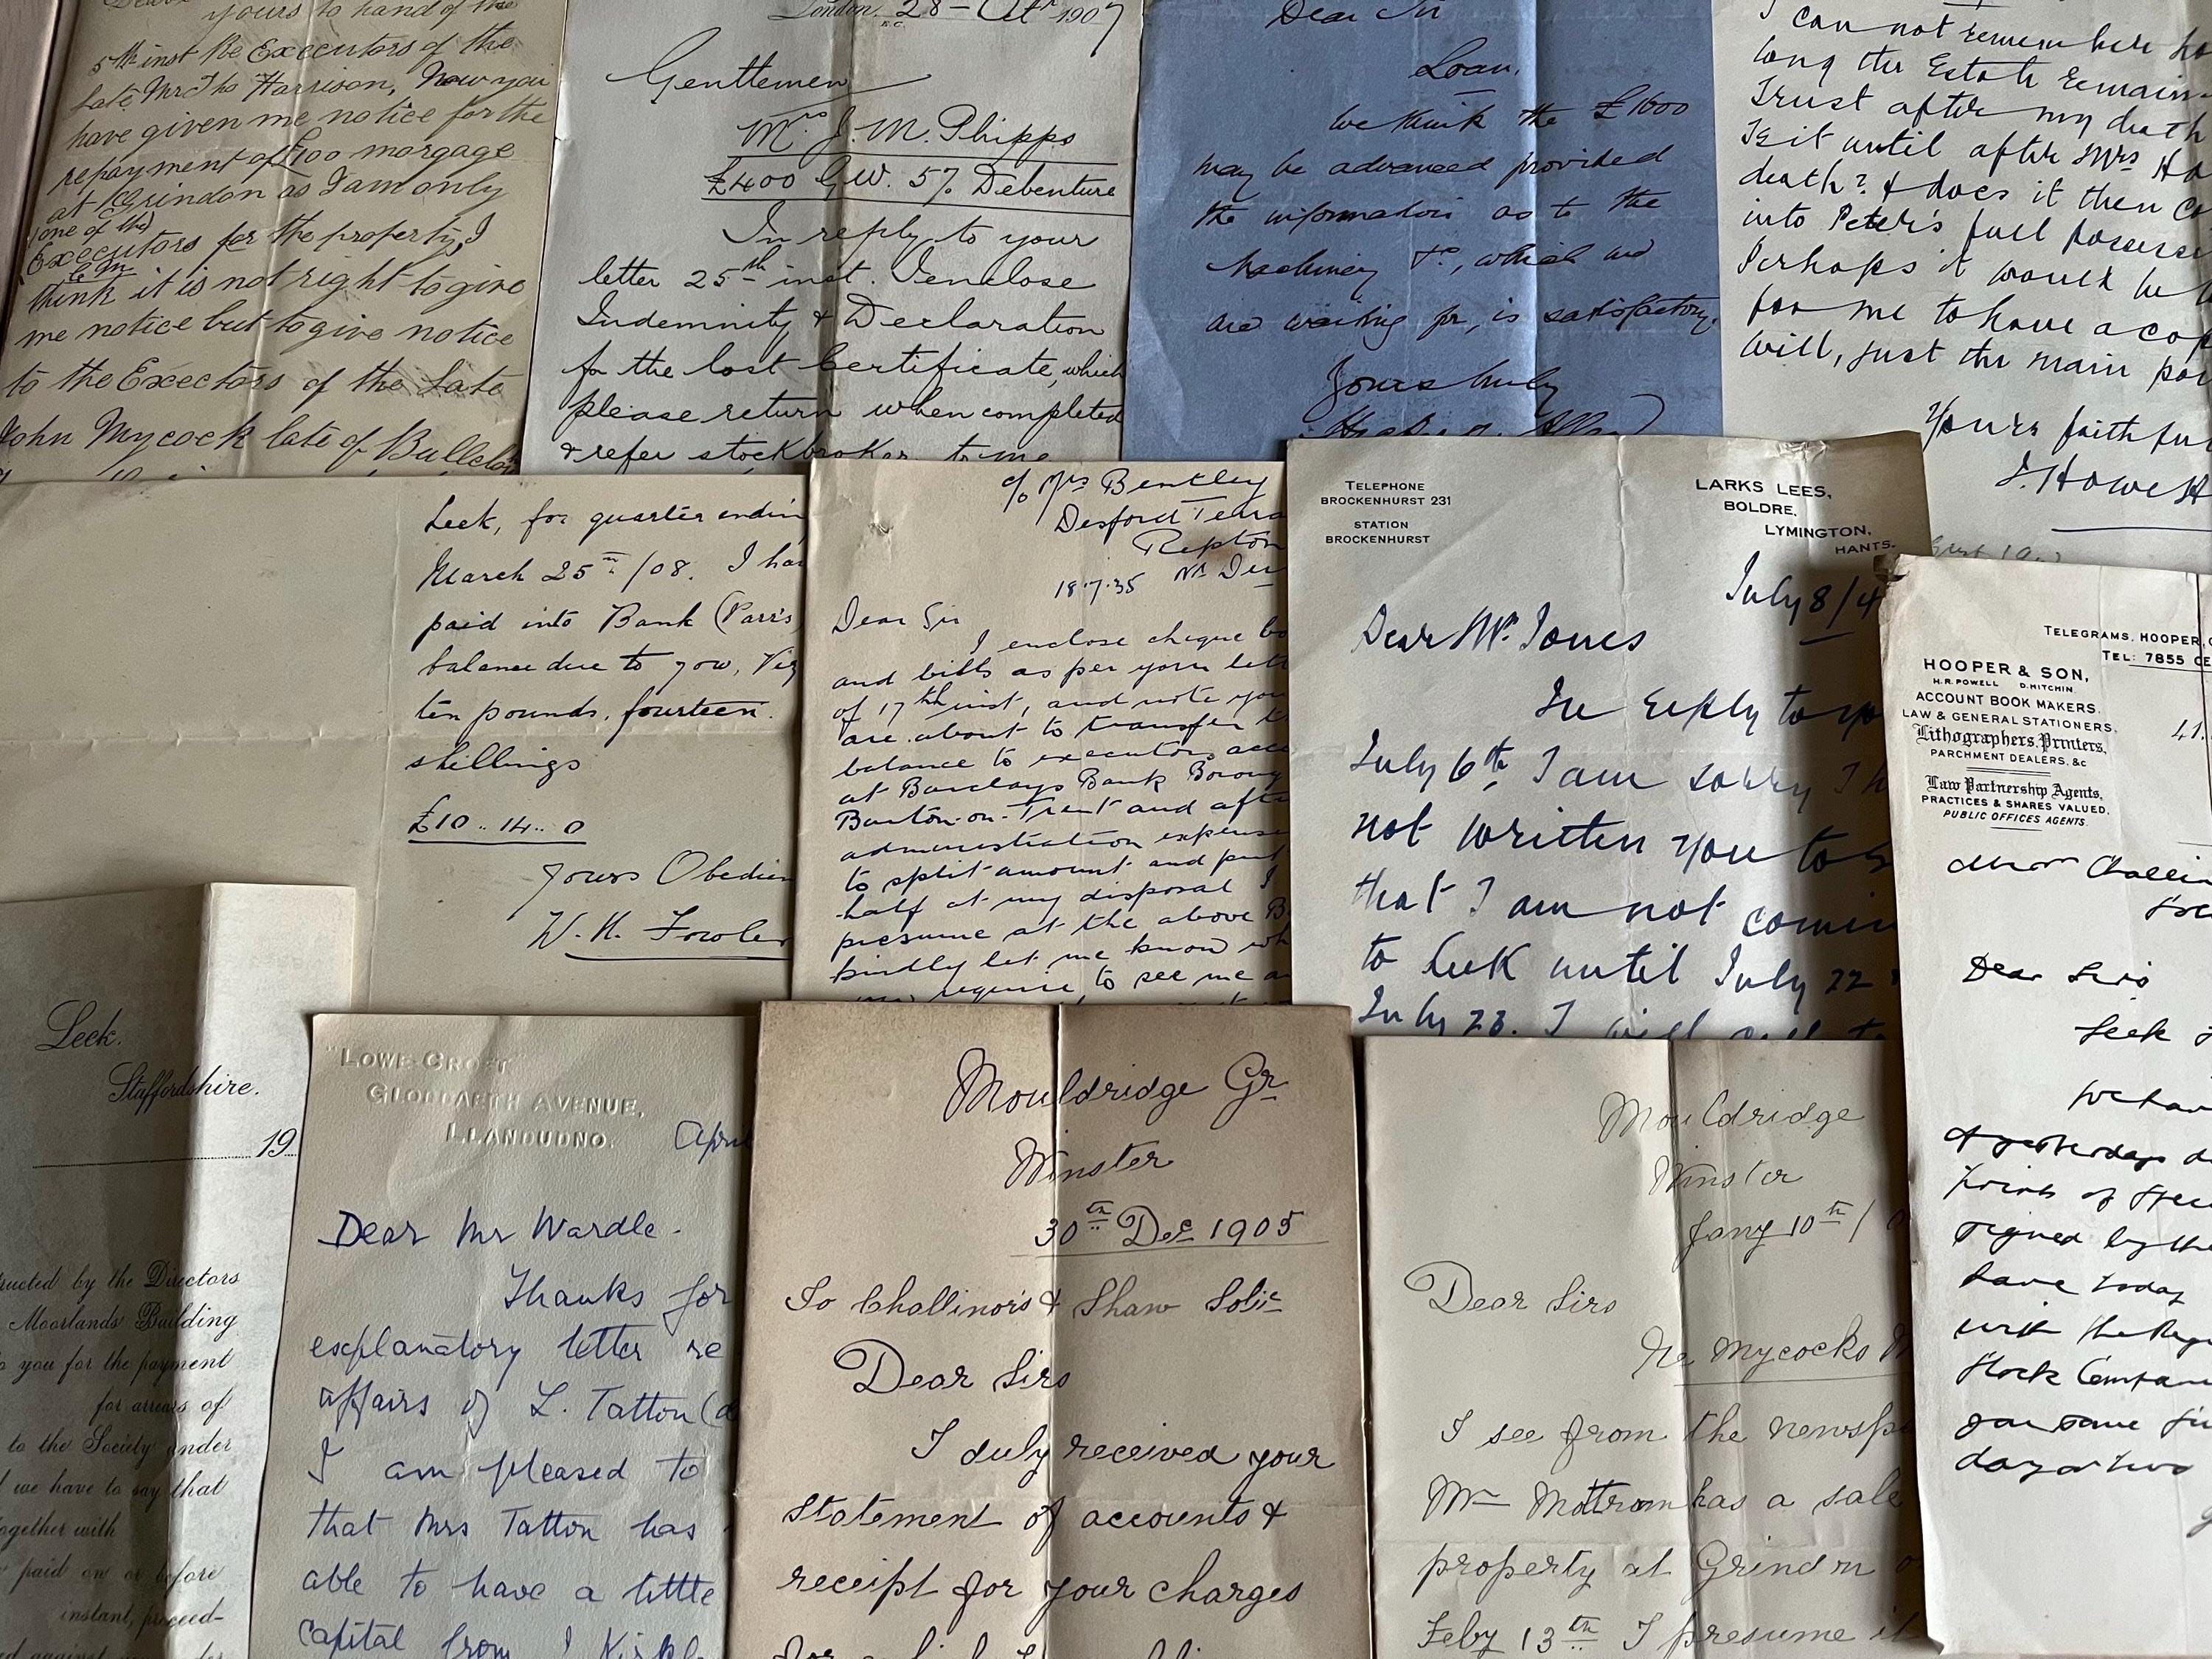 yours to hand of the
5th inst Re Executors of the
Late Mr Tho Harrison, Now you
have given me notice for the
repayment of £100 morgage
at Grindon as I am only
(one of the)
Executors for the property, I
think it is not right to give
me notice but to give notice
to the Exectors of the Late
John Mycock late of
London, 28 – Oct 1907
E.C.
Gentlemen
Mrs J. M. Phipps
£400 G.W. 5% Debenture
In reply to your
letter 25th inst. I enclose
Indemnity & Declaration
for the lost Certificate, which
please return when completed
& refer stockbroker to me
Dear Sir
Loan.
We think the £1600
may be advanced provided
the information as to the
Machinery &c., which we
are waiting for, is satisfactory.
Yours truly
I can not remember
long the Estate remain
Trust after my death
Is it until after Mrs
death? & does it then
into Peter's full possessi
Perhaps it would be
for me to have a cop
will, just the main
Yours faithfu
Leek, for quarter endin
March 25th /08. I ha
paid into Bank (Parr's
balance due to you, Viz
ten pounds, fourteen
shillings
£10 .. 14 .. 0
Yours Obedien
W. H. Fowler
c/o Mrs Bentley
Desford Terra
Repton
Nr. Der
18.7.35
Dear Sir
I enclose cheque bo
and bills as per your lett
of 17th inst, and note you
are about to transfer
balance to executors acc
at Barclays Bank Boroug
Burton-on-Trent and afte
administration expense
to split amount and put
half at my disposal I
presume at the above B
kindly let me know wh
you require to see me a
TELEPHONE
BROCKENHURST 231
STATION
BROCKENHURST
LARKS LEES,
BOLDRE,
LYMINGTON,
HANTS.
July 8/4
Dear Mr. Jones
In reply to yo
July 6th, I am sorry I h
not written you to s
that I am not comin
to Leek until July 22
July 23. I will call to
TELEGRAMS, HOOPER,
TEL: 7855 CE
HOOPER & SON,
H.R. POWELL D. HITCHIN
ACCOUNT BOOK MAKERS.
LAW & GENERAL STATIONERS,
Lithographers, Printers,
PARCHMENT DEALERS, &c
Law Partnership Agents.
PRACTICES & SHARES VALUED.
PUBLIC OFFICES AGENTS.
41.
Dear Sirs
Leek
We hav
of yesterday's
signed by the
have today
with the
Stock Compan
day or two
Leek.
Staffordshire.
19
ructed by the Directors
Moorlands Building
to you for the payment
for arrears of
to the Society under
we have to say that
together with
paid on or before
instant, proceed-
"LOWE-CROFT
GLODDAETH AVENUE,
LLANDUDNO.
April
Dear Mr Wardle.
Thanks for
explanatory letter re
affairs of L. Tatton (d
I am pleased to
that Mrs Tatton has
able to have a little
capital from J Kirkh
Mouldridge Gr
Winster
30th Dec 1905
To Challinors & Shaw Solrs
Dear Sirs
I duly received your
statement of accounts &
receipt for your charges
Mouldridge
Winster
Jany 10th /
Dear Sirs
Re Mycocks
I see from the newsp
Mr Mottram has a sale
property at Grindon
Feby 13th I presume it